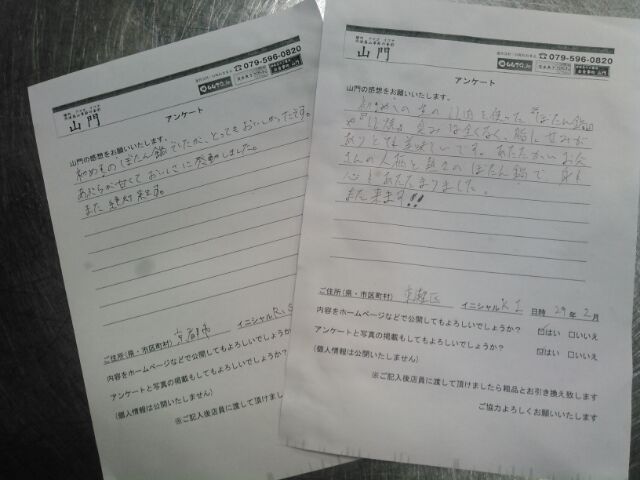 山門
☎079-596-0820
アンケート
山門の感想をお願いいたします。
初めてのぼたん鍋でしたが、とってもおいしかったです。
あぶらが甘くておいしさに感動しました。
また絶対来ます。
ご住所(県・市区町村) 京都市 イニシャル R.S
内容をホームページなどで公開してもよろしいでしょうか?
アンケートと写真の掲載もよろしいでしょうか?
(個人情報は公開いたしません)
※ご記入後店員に渡して頂けま
山門
☎079-596-0820
アンケート
山門の感想をお願いいたします。
初めての生の 肉を使った『ぼたん鍋』
臭みは全くなく、脂に甘みが
ありとても美味しいです。あたたかいお店
さんの人柄と ぼたん鍋で 身も
心もあたたまりました。
また来ます!!
ご住所(県・市区町村) イニシャル K.I 日時 29年2月
内容をホームページなどで公開してもよろしいでしょうか? ☑はい □いいえ
アンケートと写真の掲載もよろしいでしょうか? ☑はい □いいえ
(個人情報は公開いたしません)
※ご記入後店員に渡して頂けましたら粗品とお引き換え致します
ご協力よろしくお願いいたします